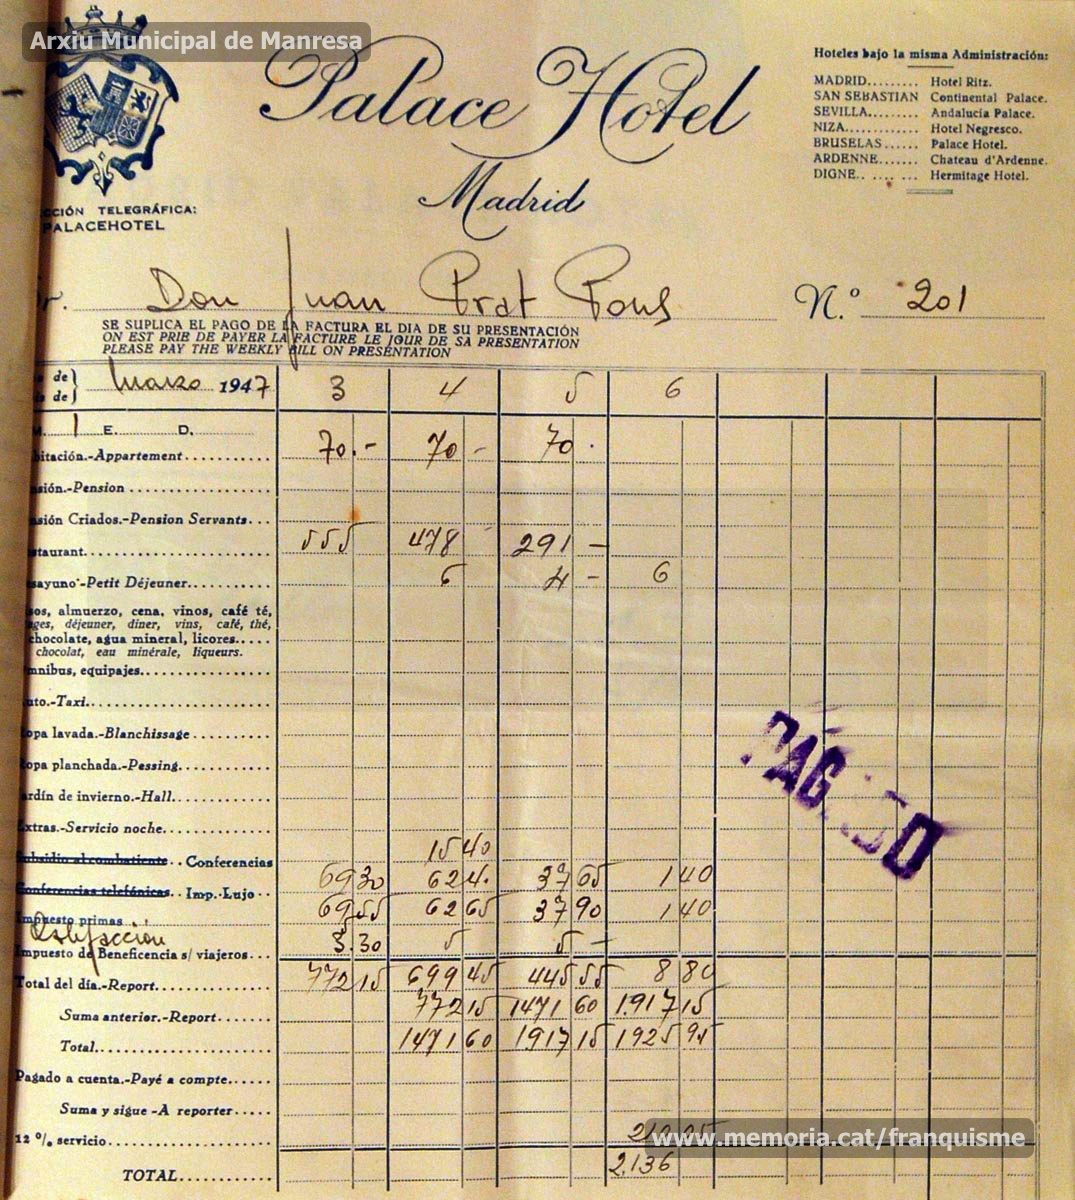 Arxiu Municipal de Manresa
Palace Hotel
Madrid
Hoteles bajo la misma Administración:
MADRID......... Hotel Ritz.
SAN SEBASTIAN Continental Palace.
SEVILLA........ Andalucía Palace.
NIZA............ Hotel Negresco.
BRUSELAS...... Palace Hotel.
ARDENNE....... Chateau d'Ardenne.
DIGNE.. .. ... .. Hermitage Hotel.
CCIÓN TELEGRÁFICA:
PALACEHOTEL
Sr. Don Juan Prat Pons N.º 201
SE SUPLICA EL PAGO DE LA FACTURA EL DIA DE SU PRESENTACIÓN
ON EST PRIE DE PAYER LA FACTURE LE JOUR DE SA PRESENTATION
PLEASE PAY THE WEEKLY BILL ON PRESENTATION
de
de } marzo 1947 3 4 5 6
M. 1 E. D.
bitación.-Appartement 70.- 70 - 70 .
sión.-Pension
sión Criados.-Pension Servants...
staurant. 555 478 291 -
sayuno-Petit Déjeuner 6 4 - 6
sos, almuerzo, cena, vinos, café té,
ges, déjeuner, diner, vins, café, thé,
chocolate, agua mineral, licores.....
chocolat, eau minérale, liqueurs.
mnibus, equipajes.
uto.-Taxi.
opa lavada.-Blanchissage
opa planchada.-Pessing.
ardín de invierno.-Hall.
Extras.-Servicio noche.
Subsidio al combatiente.. Conferencias 15 40
Conferencias telefónicas. Imp.-Lujo.. 69 30 62 4. 37 65 1 40
Impuesto primas 69 55 62 65 37 90 1 40
Calefacción
Impuesto de Beneficencia s/ viajeros... 3.30 5 5 -
Total del día.-Report. 772 15 699 45 445 55 8 80
Suma anterior.-Report 772 15 1471 60 1.917 15
Total. 1471 60 1917 15 1925 95
Pagado a cuenta.-Payé a compte.
Suma y sigue -A reporter.
12 % servicio
TOTAL 2.136
PAGADO
www.memoria.cat/franquisme